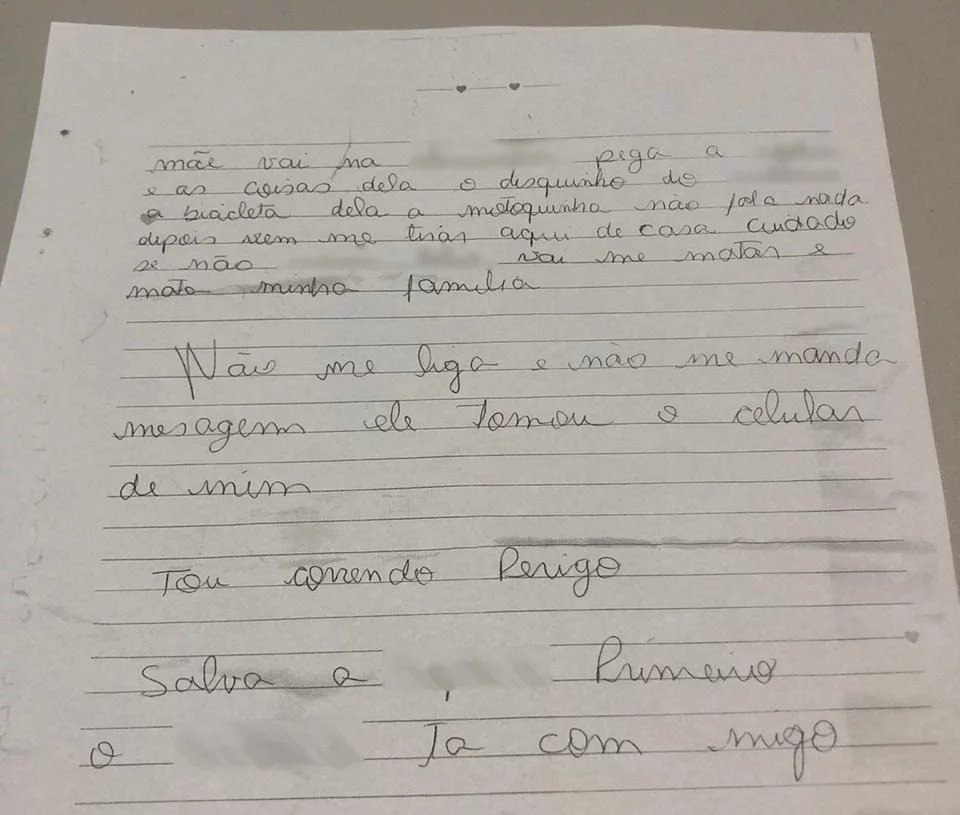 mãe vai na pega a
e as coisas dela o disquinho do
a bicicleta dela a motoquinha não fala nada
depois vem me tirar aqui de casa cuidado
se não vai me matar e
mata minha familia
Não me liga e não me manda
mesagem ele tomou o celular
de mim
Tou correndo Perigo
Salva a , Primeiro
o Ta com migo